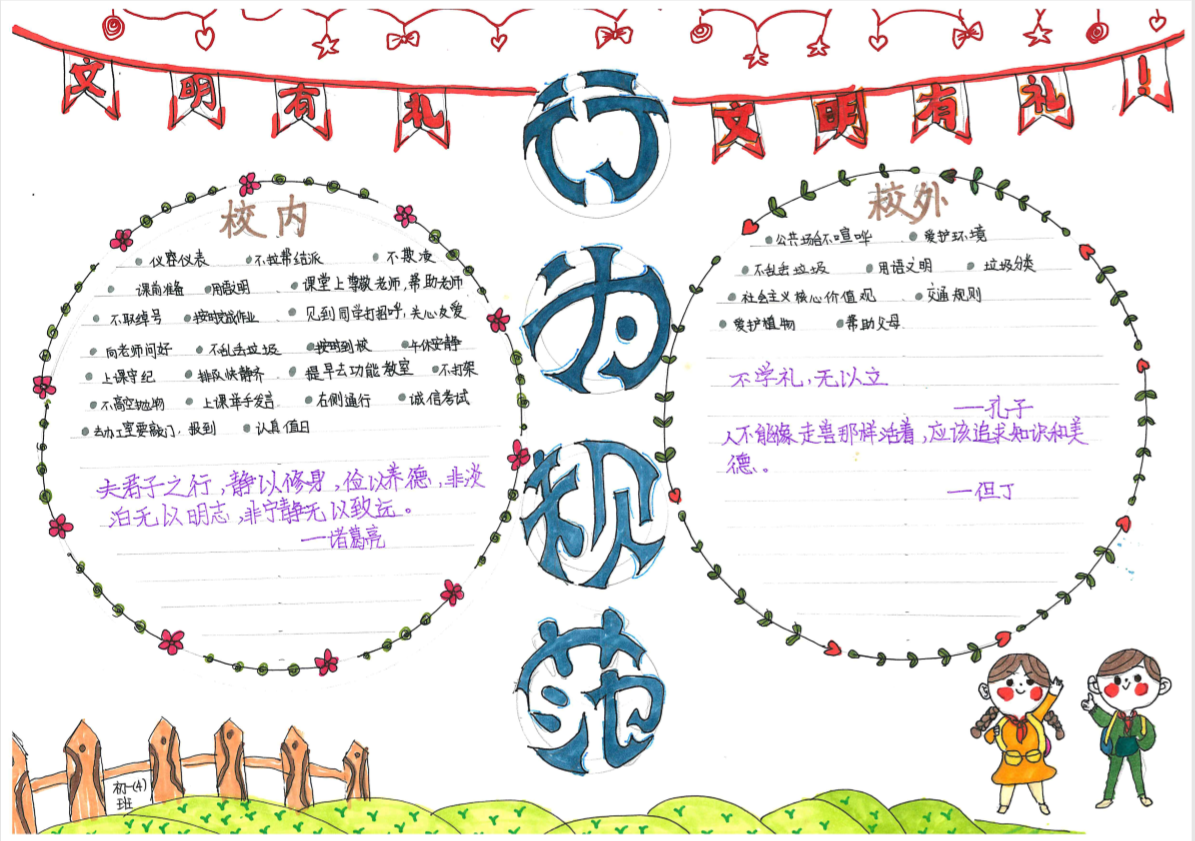 文明有礼
文明有礼！
行为规范
校内
仪容仪表 不拉帮结派 不欺凌
课前准备 用语文明 课堂上尊敬老师，帮助老师
不取绰号 按时完成作业 见到同学打招呼，关心友爱
向老师问好 不乱丢垃圾 按时到校 午休安静
上课守纪 排队快静齐 提早去功能教室 不打架
不高空抛物 上课举手发言 右侧通行 诚信考试
去办工室要敲门，报到 认真值日
夫君子之行，静以修身，俭以养德，非淡
泊无以明志，非宁静无以致远。
—诸葛亮
校外
公共场合不喧哗 爱护环境
不乱丢垃圾 用语文明 垃圾分类
社会主义核心价值观 交通规则
爱护植物 帮助父母
不学礼，无以立
—孔子
人不能像走兽那样活着，应该追求知识和美
德。
—但丁
初一(4)
班